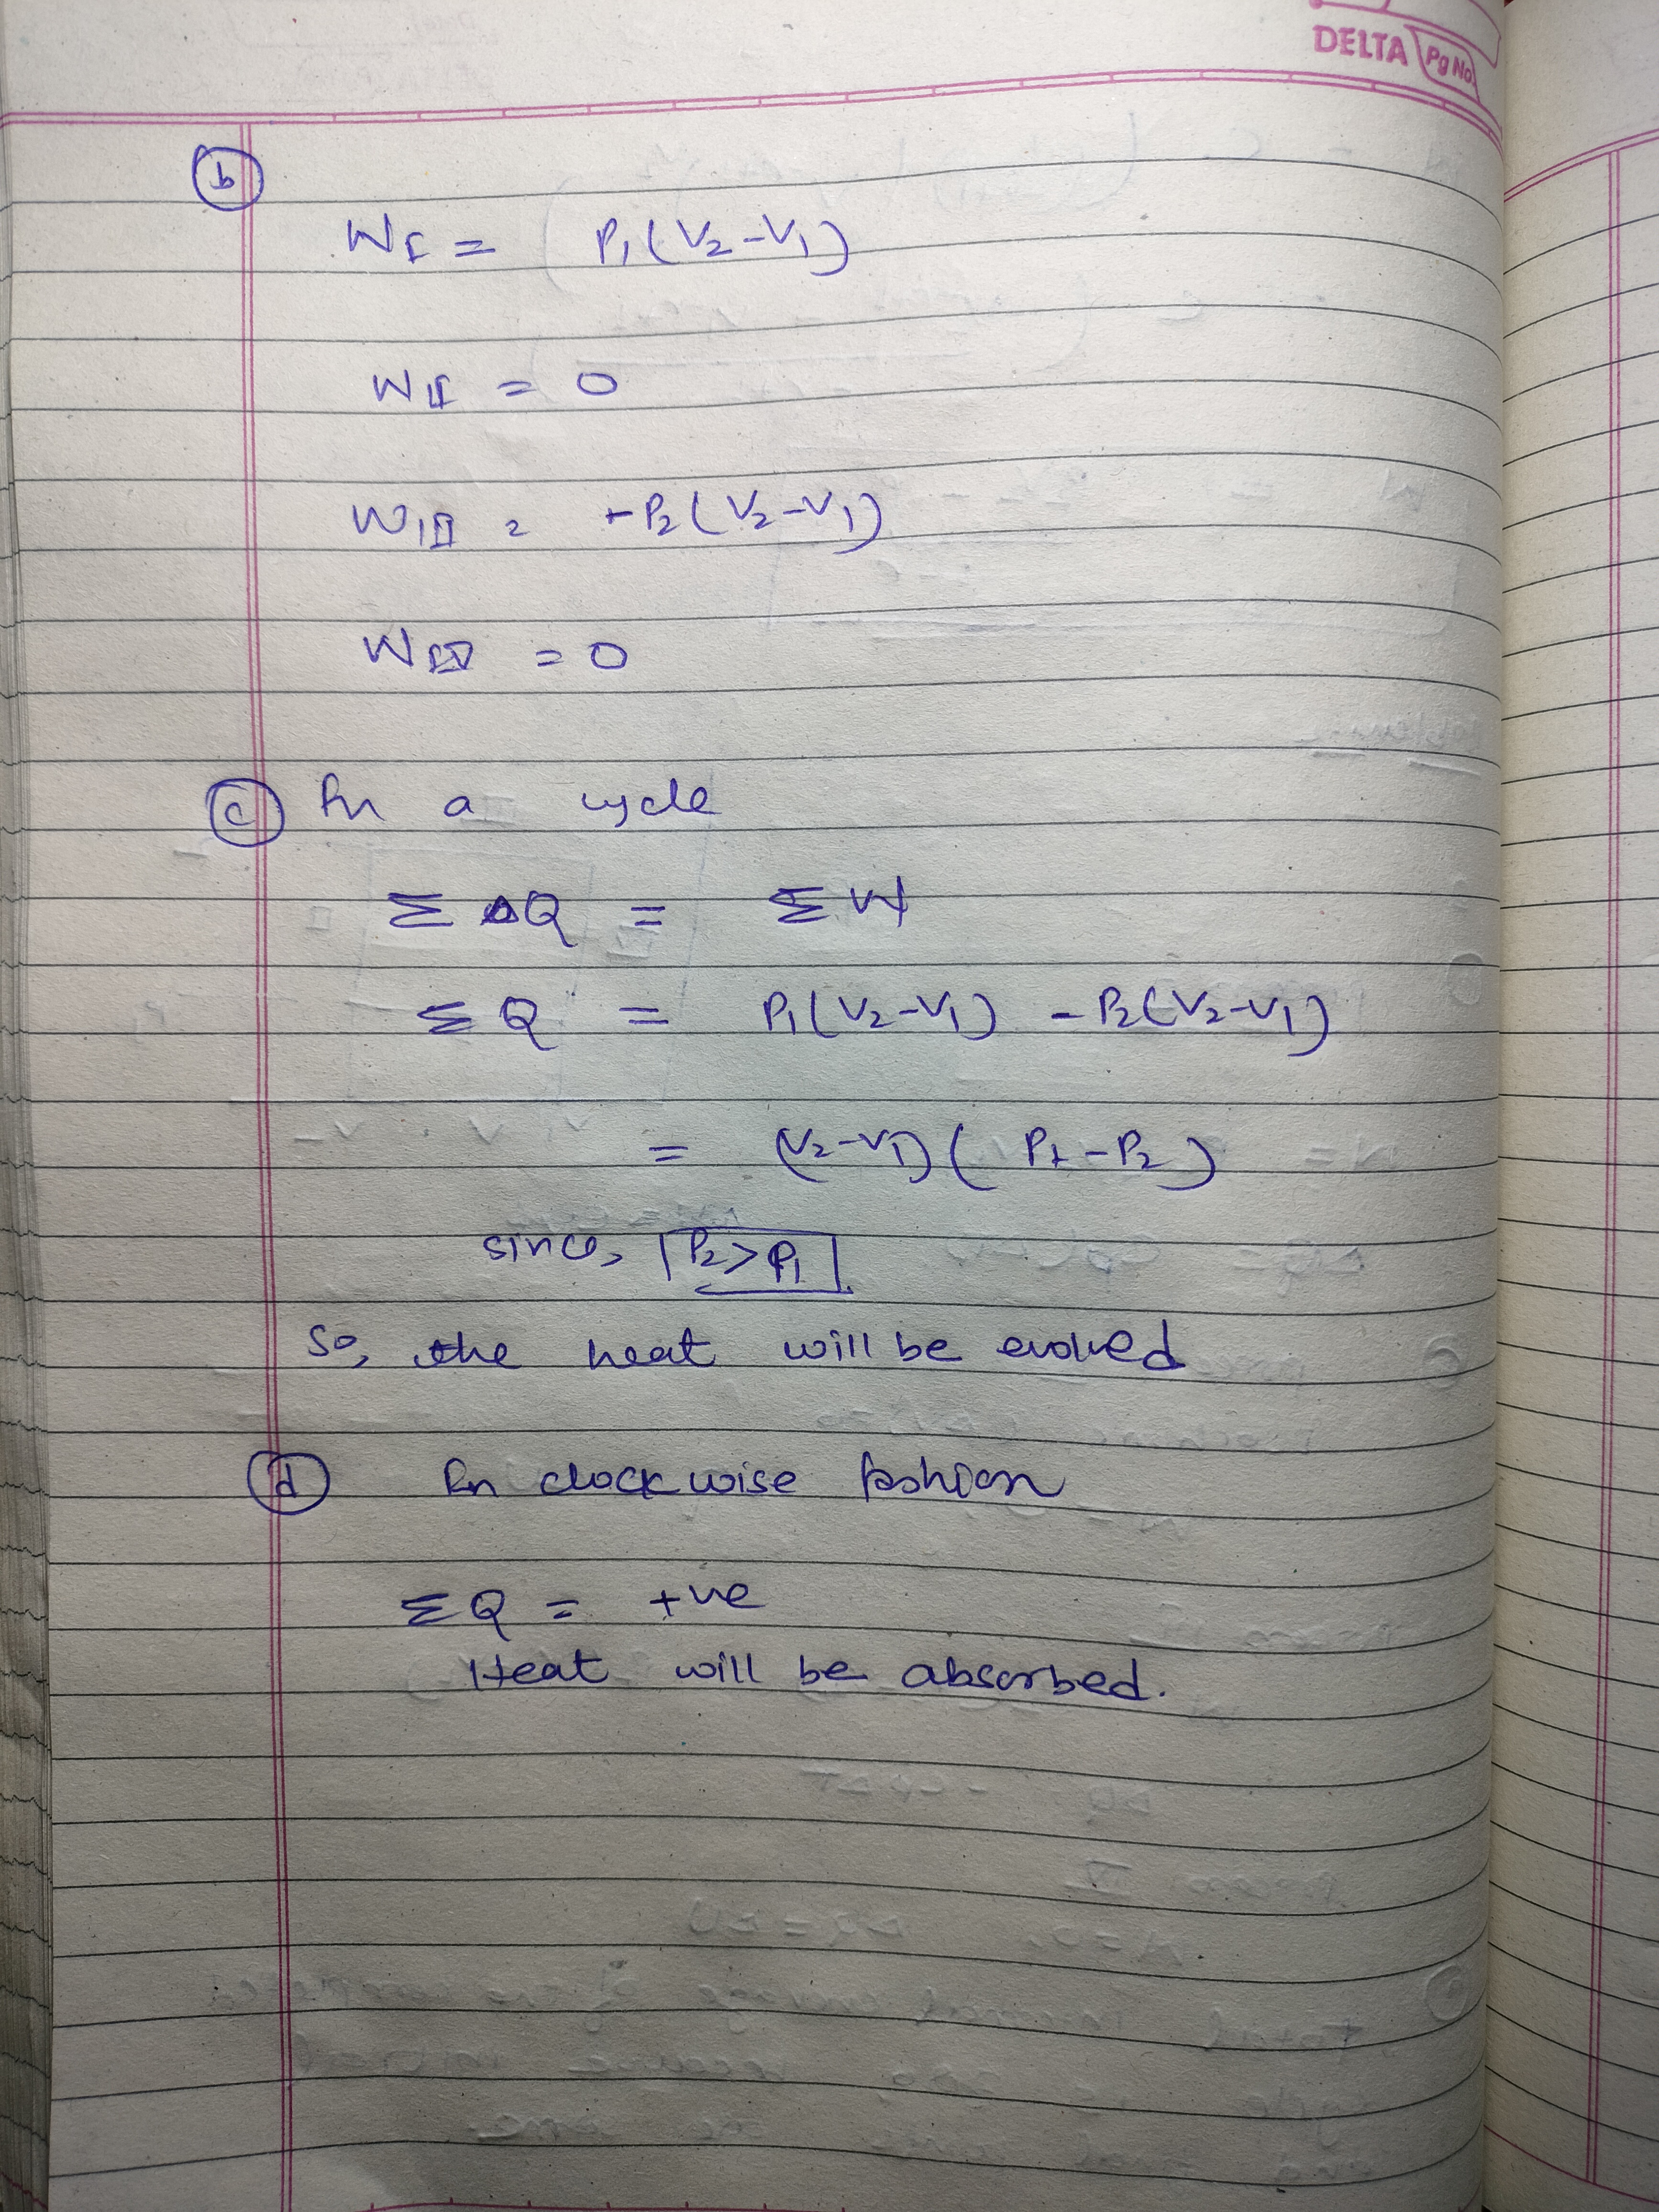 DELTA Pg No
b
W_I = P₁(V₂-V₁)
W_II = 0
W_III = -P₂(V₂-V₁)
W_IV = 0
c In a cycle
Σ ΔQ = Σ W
Σ Q = P₁(V₂-V₁) - P₂(V₂-V₁)
= (V₂-V₁)(P₁-P₂)
since, P₂>P₁
so, the heat will be evolved
d In clockwise fashion
ΣQ = +ve
Heat will be absorbed.